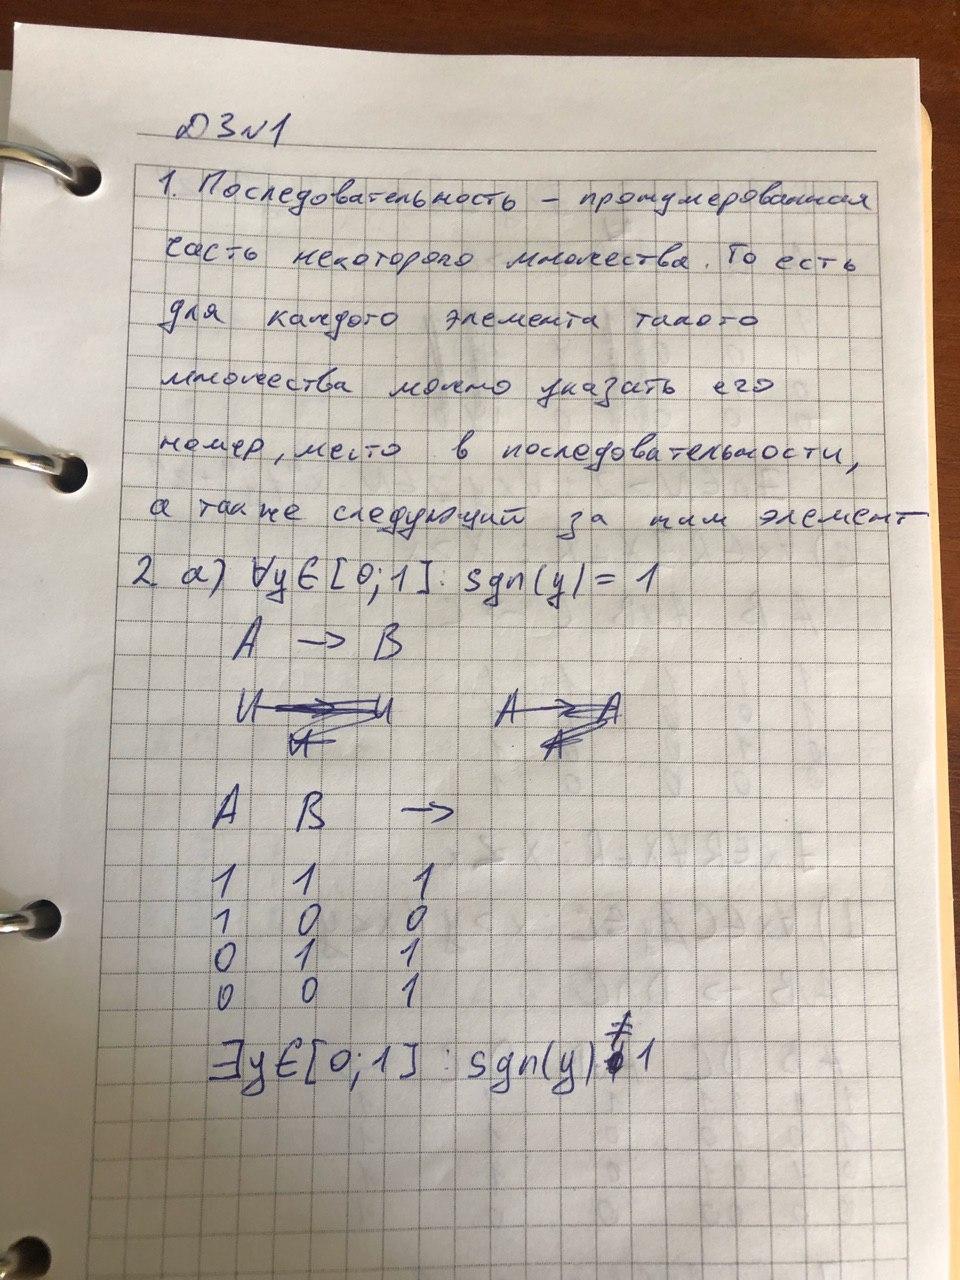 ДЗ №1
1. Последовательность – пронумерованная
часть некоторого множества. То есть
для каждого элемента такого
множества можно указать его
номер, место в последовательности,
а также следующий за ним элемент
2 а) ∀y∈[0;1]: sgn(y)=1
A → B
A B →
1 1 1
1 0 0
0 1 1
0 0 1
∃y∈[0;1]: sgn(y)≠1